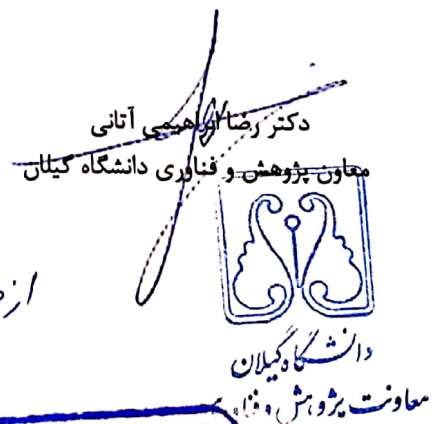 دکتر رضا ابراهیمی آتانی
معاون پژوهش و فناوری دانشگاه گیلان
دانشگاه گیلان
معاونت پژوهش و